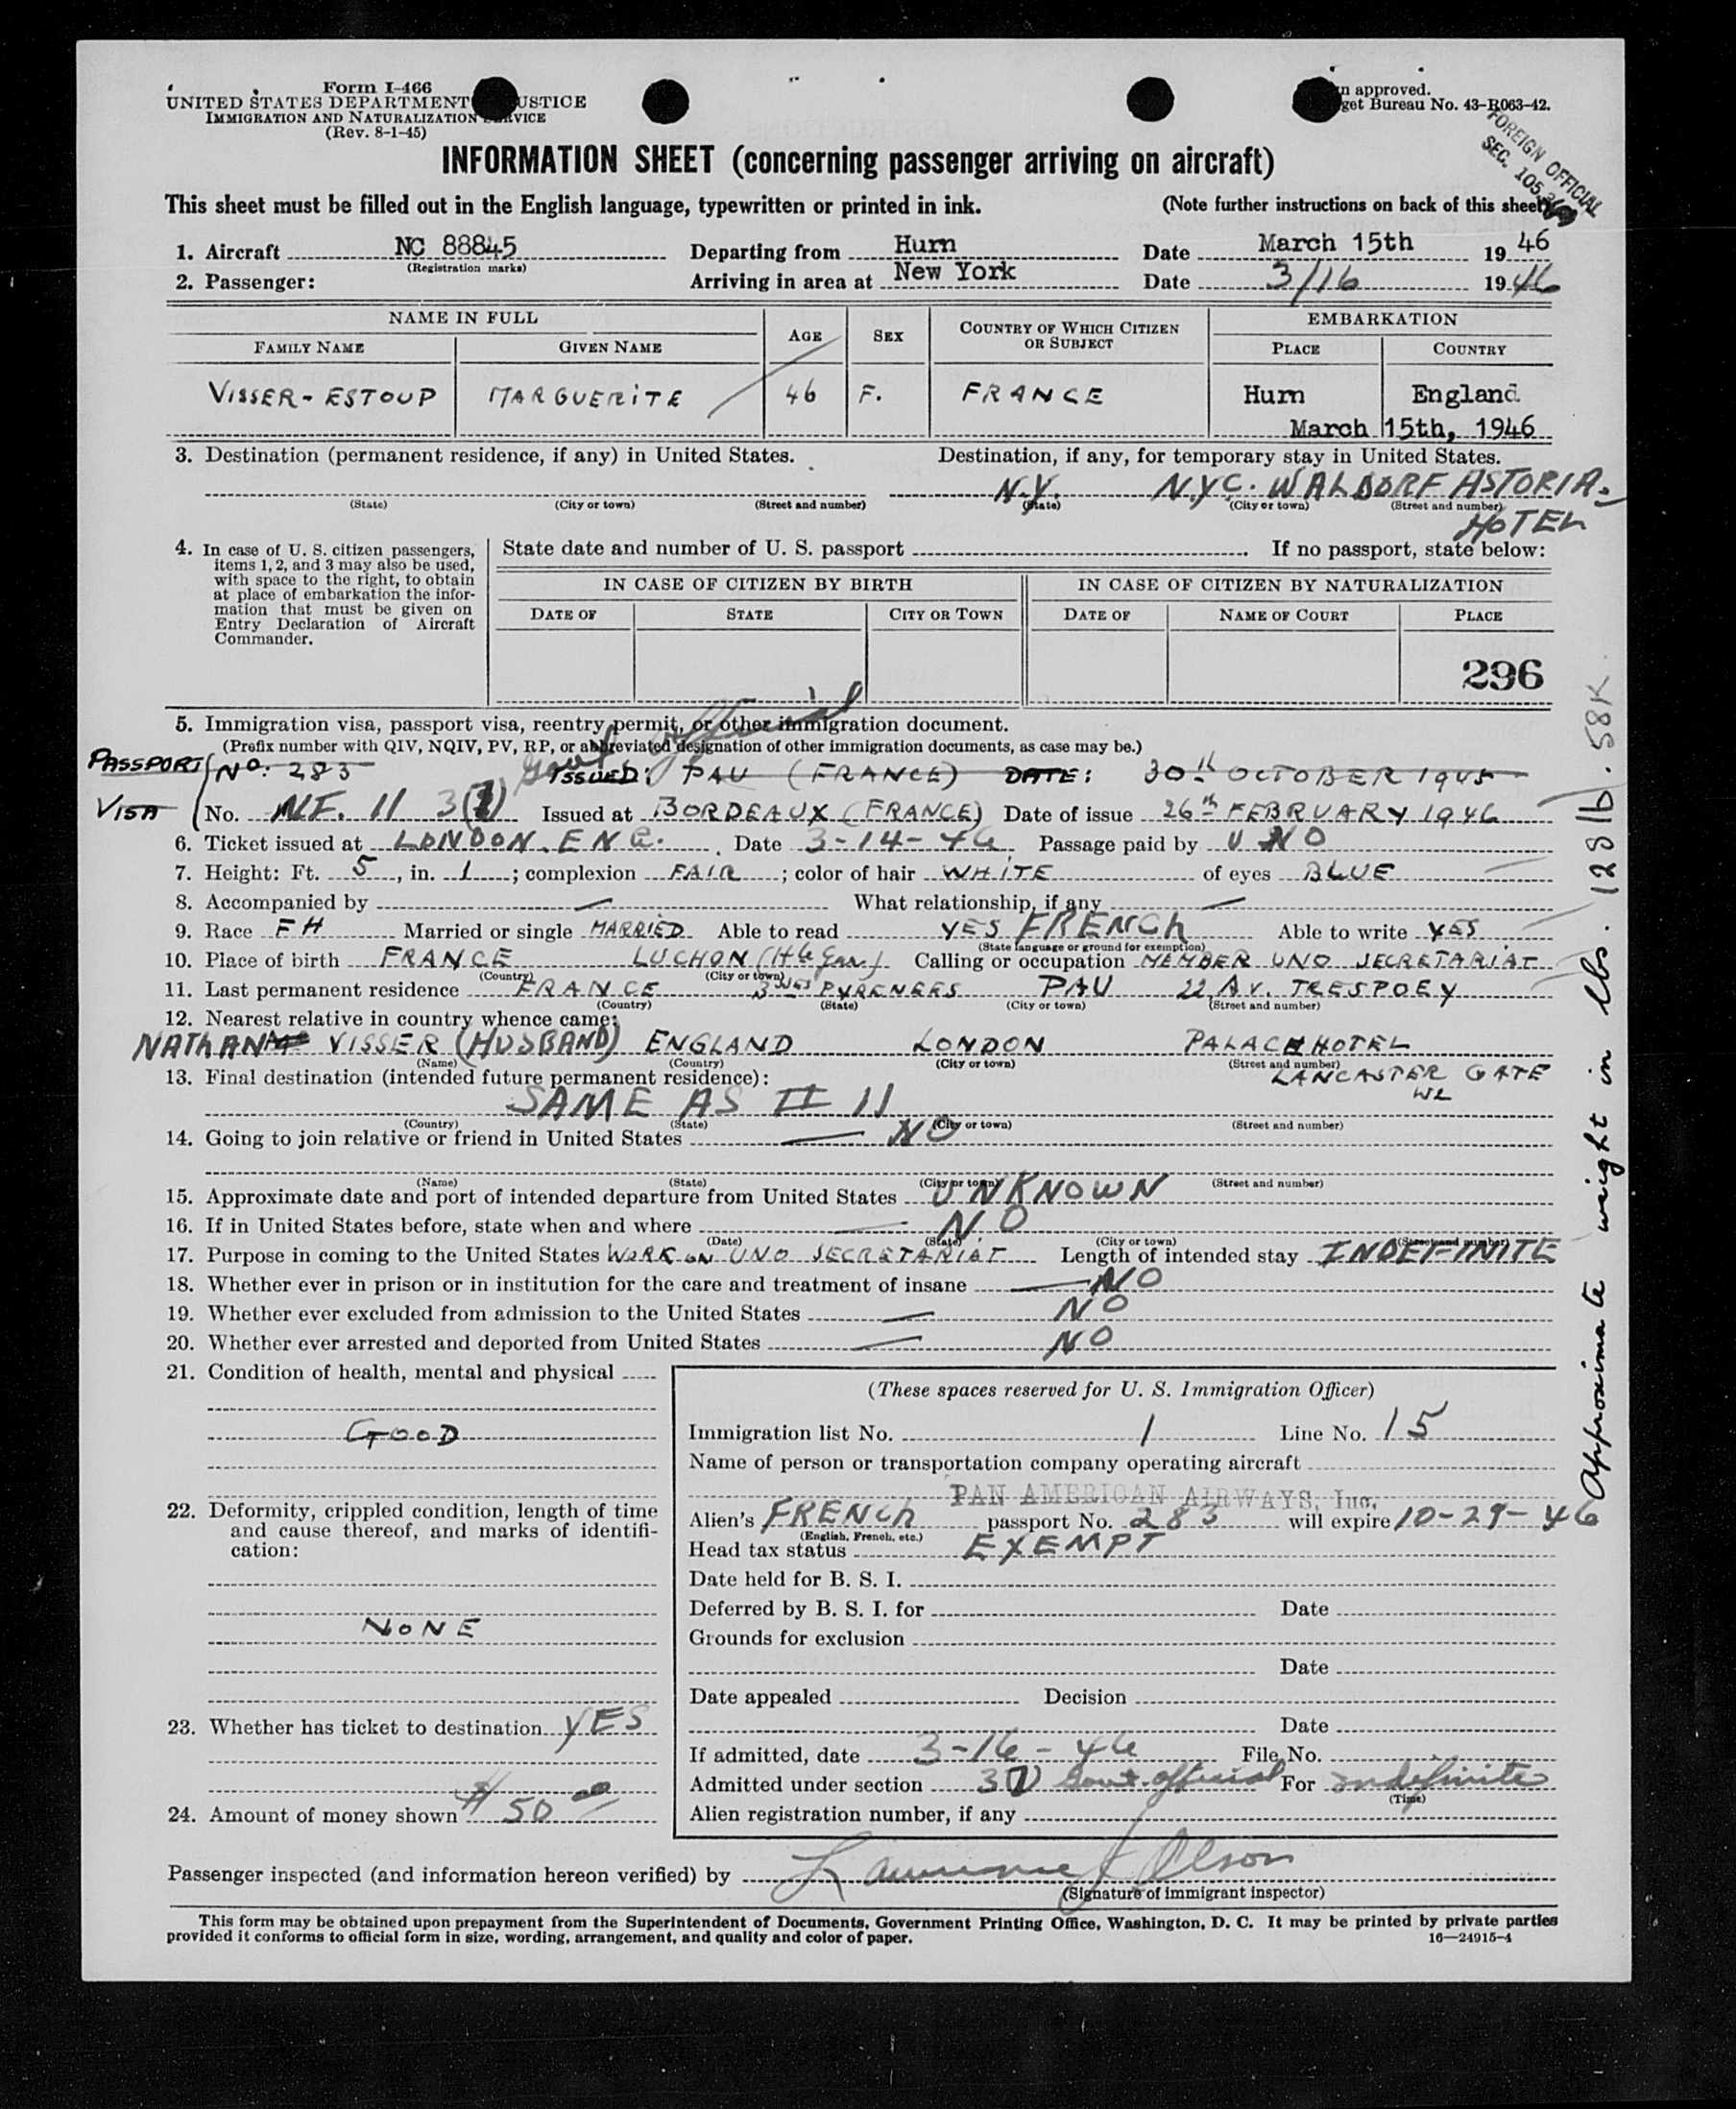 Form I-466
UNITED STATES DEPARTMENT USTICE
IMMIGRATION AND NATURALIZATION VICE
(Rev. 8-1-45)
n approved.
get Bureau No. 43-R063-42.
FOREIGN OFFICIAL
SEC. 105.3
INFORMATION SHEET (concerning passenger arriving on aircraft)
This sheet must be filled out in the English language, typewritten or printed in ink. (Note further instructions on back of this sheet)
1. Aircraft NC 88845 Departing from Hurn Date March 15th 19 46
(Registration marks)
2. Passenger: Arriving in area at New York Date 3/16 19 46
NAME IN FULL AGE SEX COUNTRY OF WHICH CITIZEN OR SUBJECT EMBARKATION
FAMILY NAME GIVEN NAME PLACE COUNTRY
VISSER-ESTOUP MARGUERITE 46 F. FRANCE Hurn England
March 15th, 1946
3. Destination (permanent residence, if any) in United States. Destination, if any, for temporary stay in United States.
N.Y. N.Y.C. WALDORF ASTORIA-
(State) (City or town) (Street and number) (State) (City or town) (Street and number)
HOTEL
4. In case of U. S. citizen passengers, items 1, 2, and 3 may also be used, with space to the right, to obtain at place of embarkation the information that must be given on Entry Declaration of Aircraft Commander.
State date and number of U. S. passport If no passport, state below:
IN CASE OF CITIZEN BY BIRTH IN CASE OF CITIZEN BY NATURALIZATION
DATE OF STATE CITY OR TOWN DATE OF NAME OF COURT PLACE
296
5. Immigration visa, passport visa, reentry permit, or other immigration document.
Govt official
(Prefix number with QIV, NQIV, PV, RP, or abbreviated designation of other immigration documents, as case may be.)
PASSPORT No: 283 ISSUED: PAU (FRANCE) DATE: 30th OCTOBER 1945
VISA No. NF. 11 3(7) Issued at BORDEAUX (FRANCE) Date of issue 26th FEBRUARY 1946
6. Ticket issued at LONDON. ENG. Date 3-14-46 Passage paid by UNO
7. Height: Ft. 5, in. 1; complexion FAIR; color of hair WHITE of eyes BLUE
8. Accompanied by — What relationship, if any —
9. Race FH Married or single MARRIED Able to read YES FRENCH Able to write YES
(State language or ground for exemption)
10. Place of birth FRANCE LUCHON (Hte Gar.) Calling or occupation MEMBER UNO SECRETARIAT
(Country) (City or town)
11. Last permanent residence FRANCE BSSES PYRENEES PAU 22 AV. TRESPOEY
(Country) (State) (City or town) (Street and number)
12. Nearest relative in country whence came:
NATHAN VISSER (HUSBAND) ENGLAND LONDON PALACE HOTEL
(Name) (Country) (City or town) (Street and number)
LANCASTER GATE
W2
13. Final destination (intended future permanent residence):
SAME AS # 11
(Country) (State) (City or town) (Street and number)
14. Going to join relative or friend in United States — NO
(Name) (State) (City or town) (Street and number)
15. Approximate date and port of intended departure from United States UNKNOWN
16. If in United States before, state when and where — NO
(Date) (State) (City or town) (Street and number)
17. Purpose in coming to the United States WORK ON UNO SECRETARIAT Length of intended stay INDEFINITE
18. Whether ever in prison or in institution for the care and treatment of insane — NO
19. Whether ever excluded from admission to the United States — NO
20. Whether ever arrested and deported from United States — NO
21. Condition of health, mental and physical
GOOD
22. Deformity, crippled condition, length of time and cause thereof, and marks of identification:
NONE
23. Whether has ticket to destination YES
24. Amount of money shown $50 00
(These spaces reserved for U. S. Immigration Officer)
Immigration list No. 1 Line No. 15
Name of person or transportation company operating aircraft
PAN AMERICAN AIRWAYS, Inc.
Alien's FRENCH passport No. 283 will expire 10-29-46
(English, French, etc.)
Head tax status EXEMPT
Date held for B. S. I.
Deferred by B. S. I. for Date
Grounds for exclusion
Date
Date appealed Decision
Date
If admitted, date 3-16-46 File No.
Admitted under section 3(7) Govt. official For indefinite
(Time)
Alien registration number, if any
Passenger inspected (and information hereon verified) by Lawrence J Olson
(Signature of immigrant inspector)
This form may be obtained upon prepayment from the Superintendent of Documents, Government Printing Office, Washington, D. C. It may be printed by private parties
provided it conforms to official form in size, wording, arrangement, and quality and color of paper. 16—24915-4
Approximate weight in lbs. 128 lb. 58K.